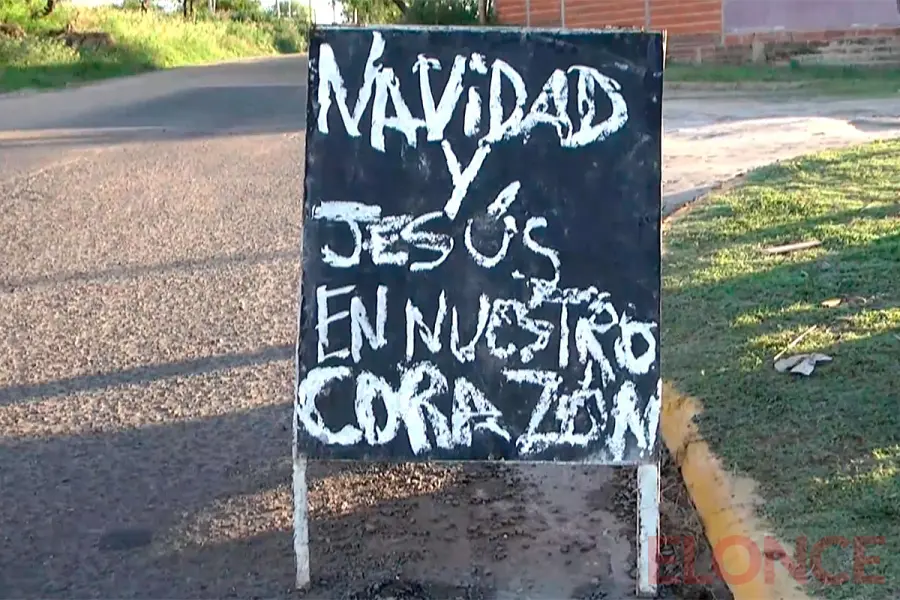 NAVIDAD
Y
JESÚS
EN NUESTRO
CORAZÓN
ELONCE